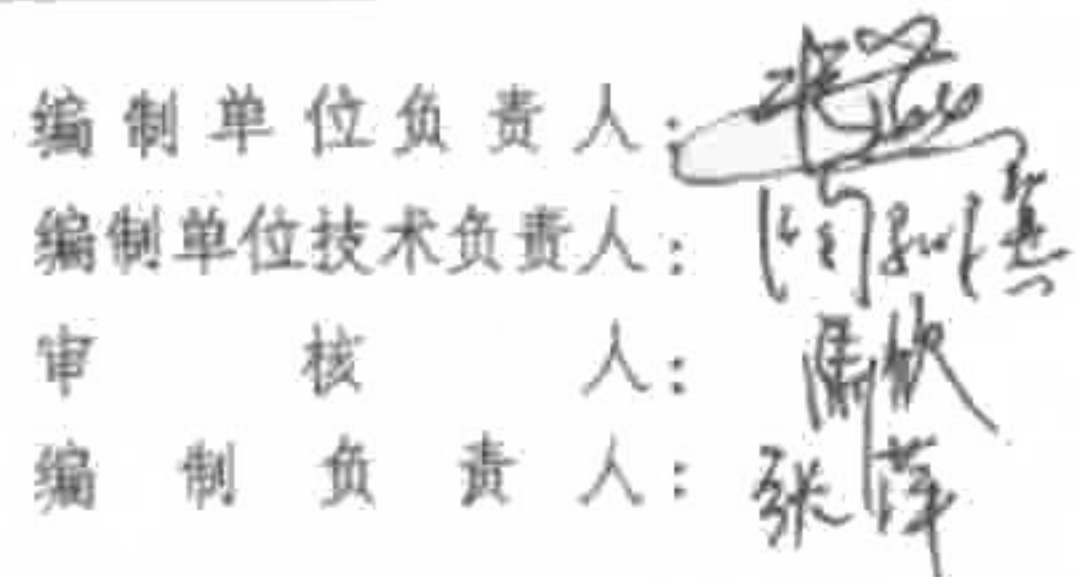 编制单位负责人：
编制单位技术负责人：
审核人：
编制负责人：张萍